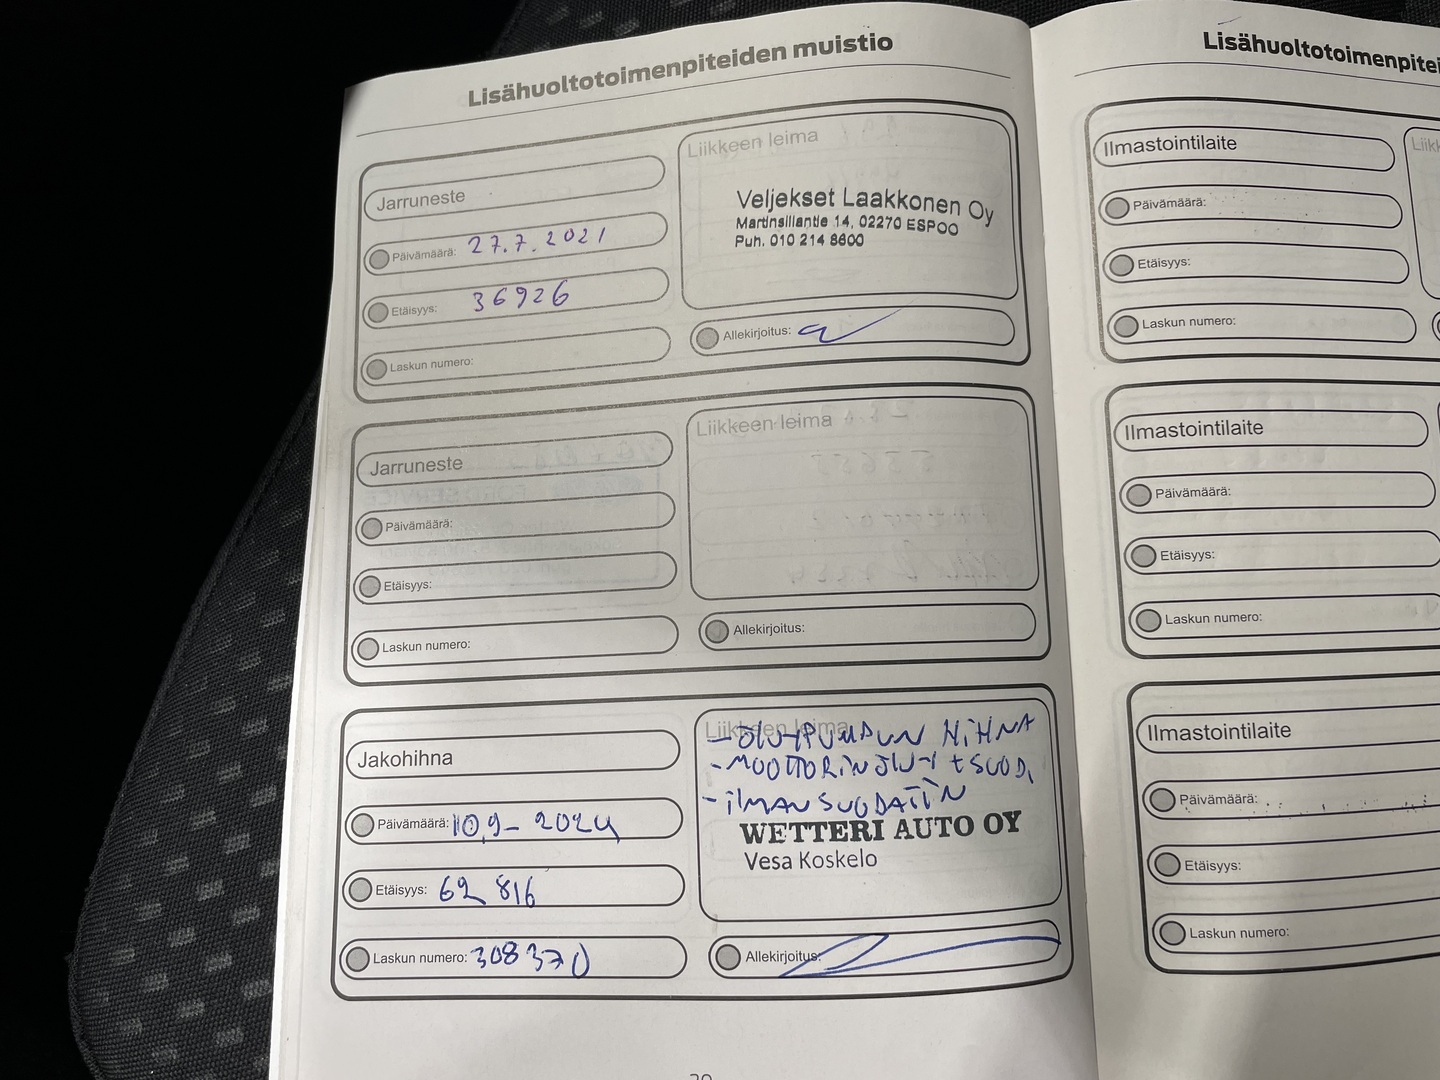 Lisähuoltotoimenpiteiden muistio
Jarruneste
Päivämäärä: 27.7.2021
Etäisyys: 36926
Laskun numero:
Liikkeen leima
Veljekset Laakkonen Oy
Martinsillantie 14, 02270 ESPOO
Puh. 010 214 8600
Allekirjoitus:
Jarruneste
Päivämäärä:
Etäisyys:
Laskun numero:
Liikkeen leima
Allekirjoitus:
Jakohihna
Päivämäärä: 10.9-2024
Etäisyys: 62 816
Laskun numero: 308370
Liikkeen leima
-ÖLJYPUMPUN HIHNA
-MOOTTORINÖLJY+SUOD.
-iLMANSUODATIN
WETTERI AUTO OY
Vesa Koskelo
Allekirjoitus:
Lisähuoltotoimenpitei
Ilmastointilaite
Päivämäärä:
Etäisyys:
Laskun numero:
Liikk
Ilmastointilaite
Päivämäärä:
Etäisyys:
Laskun numero:
Ilmastointilaite
Päivämäärä:
Etäisyys:
Laskun numero: